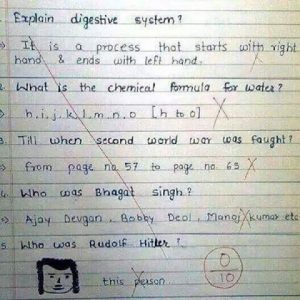 Explain digestive system?
It is a process that starts with right
hand & ends with left hand.
2. What is the chemical formula for water?
h, i, j, k, l, m, n, o [h to o]
3. Till when second world war was faught?
from page no 57 to page no 63
4. Who was Bhagat singh?
Ajay Devgan, Bobby Deol, Manoj kumar etc
5. Who was Rudolf Hitler?
this person
0
10